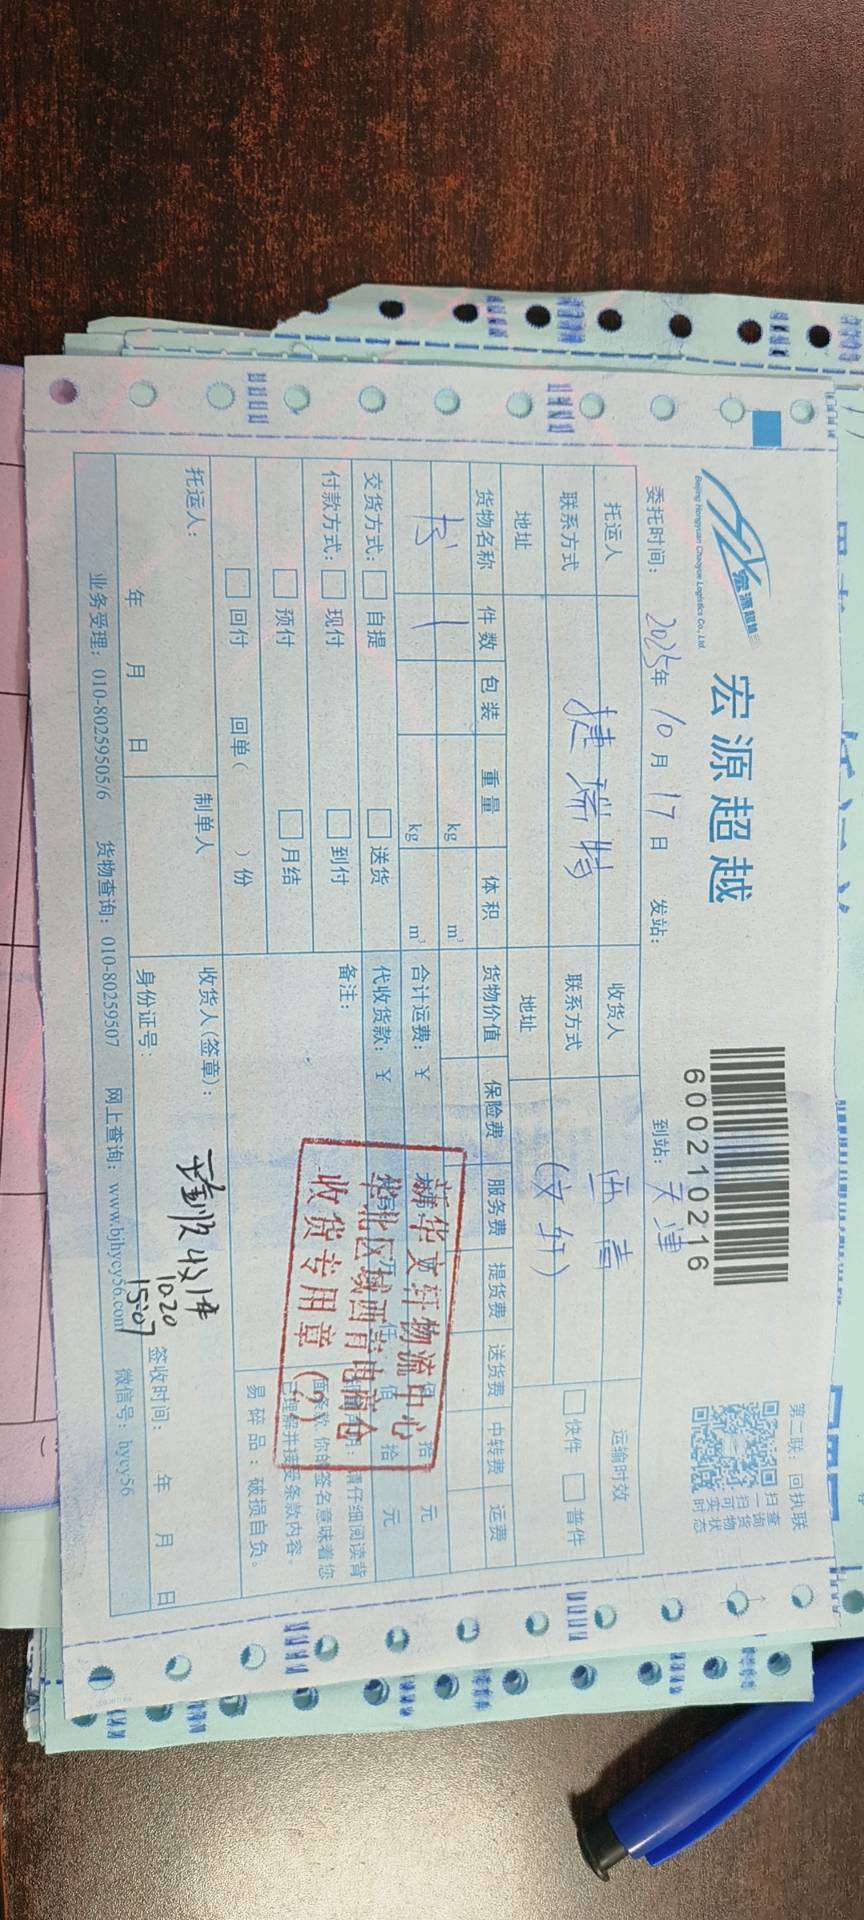 宏源超越
Beijing Hongyuan Chaoyue Logistics Co., Ltd.
宏源超越
600210216
第二联：回执联
扫查
一询
扫货
可物
实状
时态
委托时间： 2025年 10 月 17 日 发站： 到站：天津
托运人 捷瑞特 收货人 西青 运输时效
联系方式 联系方式 (文轩) 快件 普件
地址 地址
货物名称 件数 包装 重量 体积 货物价值 保险费 服务费 提货费 送货费 中转费 运费
书 1 kg m³
kg m³ 合计运费：¥ 拾 元
交货方式： 自提 送货 代收货款：¥ 仟 佰 拾 元
付款方式： 现付 到付 备注：
预付 月结
回付 回单( )份
请仔细阅读背
面条款，你的签名意味着您
已理解并接受条款内容。
易碎品：破损自负。
新华文轩物流中心
华北区域西青电商仓
收货专用章
托运人： 制单人 收货人(签章)：
收1件
10.20
15:07
年 月 日 身份证号： 签收时间： 年 月 日
业务受理：010-80259505/6 货物查询：010-80259507 网上查询：www.bjhycy56.com 微信号：hycy56